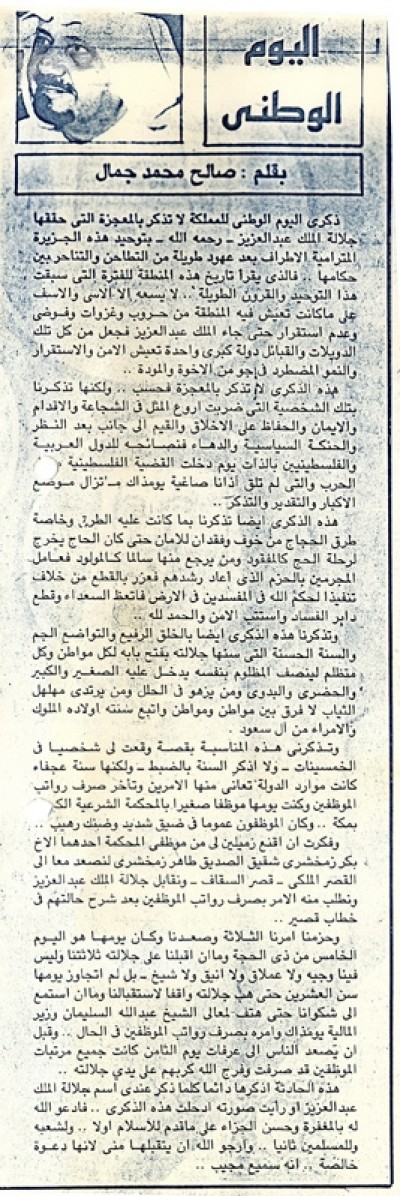 اليوم
الوطنى
بقلم : صالح محمد جمال
ذكرى اليوم الوطنى للمملكة لا تذكر بالمعجزة التى حققها
جلالة الملك عبدالعزيز ـ رحمه الله ـ بتوحيد هذه الجزيرة
المترامية الاطراف بعد عهود طويلة من التطاحن والتناحر بين
حكامها .. فالذى يقرأ تاريخ هذه المنطقة للفترة التى سبقت
هذا التوحيد والقرون الطويلة .. لا يسعه إلا الاسى والاسف
على ماكانت تعيش فيه المنطقة من حروب وغزوات وفوضى
وعدم استقرار حتى جاء الملك عبدالعزيز فجعل من كل تلك
الدويلات والقبائل دولة كبرى واحدة تعيش الامن والاستقرار
والنمو المضطرد فى جو من الاخوة والمودة ..
هذه الذكرى لا تذكر بالمعجزة فحسب .. ولكنها تذكرنا
بتلك الشخصية التى ضربت اروع المثل فى الشجاعة والاقدام
والايمان والحفاظ على الاخلاق والقيم الى جانب بعد النظر
والحنكة السياسية والدهاء فنصائحه للدول العربية
والفلسطينيين بالذات يوم دخلت القضية الفلسطينية
الحرب والتى لم تلق آذانا صاغية يومذاك ماتزال موضع
الاكبار والتقدير والتذكر ..
هذه الذكرى ايضا تذكرنا بما كانت عليه الطرق وخاصة
طرق الحجاج من خوف وفقدان للامان حتى كان الحاج يخرج
لرحلة الحج كالمفقود ومن يرجع منها سالما كالمولود فعامل
المجرمين بالحزم الذى اعاد رشدهم فعزر بالقطع من خلاف
تنفيذا لحكم الله فى المفسدين فى الارض فاتعظ السعداء وقطع
دابر الفساد واستتب الامن والحمد لله ..
وتذكرنا هذه الذكرى ايضا بالخلق الرفيع والتواضع الجم
والسنة الحسنة التى سنها جلالته بفتح بابه لكل مواطن وكل
متظلم لينصف المظلوم بنفسه يدخل عليه الصغير والكبير
والحضرى والبدوى ومن يزهو فى الحلل ومن يرتدى مهلهل
الثياب لا فرق بين مواطن ومواطن واتبع سنته اولاده الملوك
والامراء من آل سعود .
وتذكرنى هذه المناسبة بقصة وقعت لى شخصيا فى
الخمسينات ـ ولا اذكر السنة بالضبط ـ ولكنها سنة عجفاء
كانت موارد الدولة تعانى منها الامرين وتأخر صرف رواتب
الموظفين وكنت يومها موظفا صغيرا بالمحكمة الشرعية
بمكة .. وكان الموظفون عموما فى ضيق شديد وضنك رهيب ..
وفكرت ان اقنع زميلين لى من موظفى المحكمة احدهما الاخ
بكر زمخشرى شقيق الصديق طاهر زمخشرى لنصعد معا الى
القصر الملكى ـ قصر السقاف ـ ونقابل جلالة الملك عبدالعزيز
ونطلب منه الامر بصرف رواتب الموظفين بعد شرح حالتهم فى
خطاب قصير ..
وحزمنا امرنا الثلاثة وصعدنا وكان يومها هو اليوم
الخامس من ذى الحجة وماان اقبلنا على جلالته ثلاثتنا وليس
فينا وجيه ولا عملاق ولا انيق ولا شيخ ـ بل لم اتجاوز يومها
سن العشرين حتى هب جلالته واقفا لاستقبالنا وماان استمع
الى شكوانا حتى هتف لمعالى الشيخ عبدالله السليمان وزير
المالية يومذاك وامره بصرف رواتب الموظفين فى الحال .. وقبل
ان يصعد الناس الى عرفات يوم الثامن كانت جميع مرتبات
الموظفين قد صرفت وفرج الله كربهم على يدى جلالته ..
هذه الحادثة اذكرها دائما كلما ذكر عندى اسم جلالة الملك
عبدالعزيز او رأيت صورته ادخلت هذه الذكرى .. فادعو الله
له بالمغفرة وحسن الجزاء على ماقدم للأسلام اولا .. ولشعبه
وللمسلمين ثانيا .. وارجو الله ان يتقبلها منى لانها دعوة
خالصة .. انه سميع مجيب ..